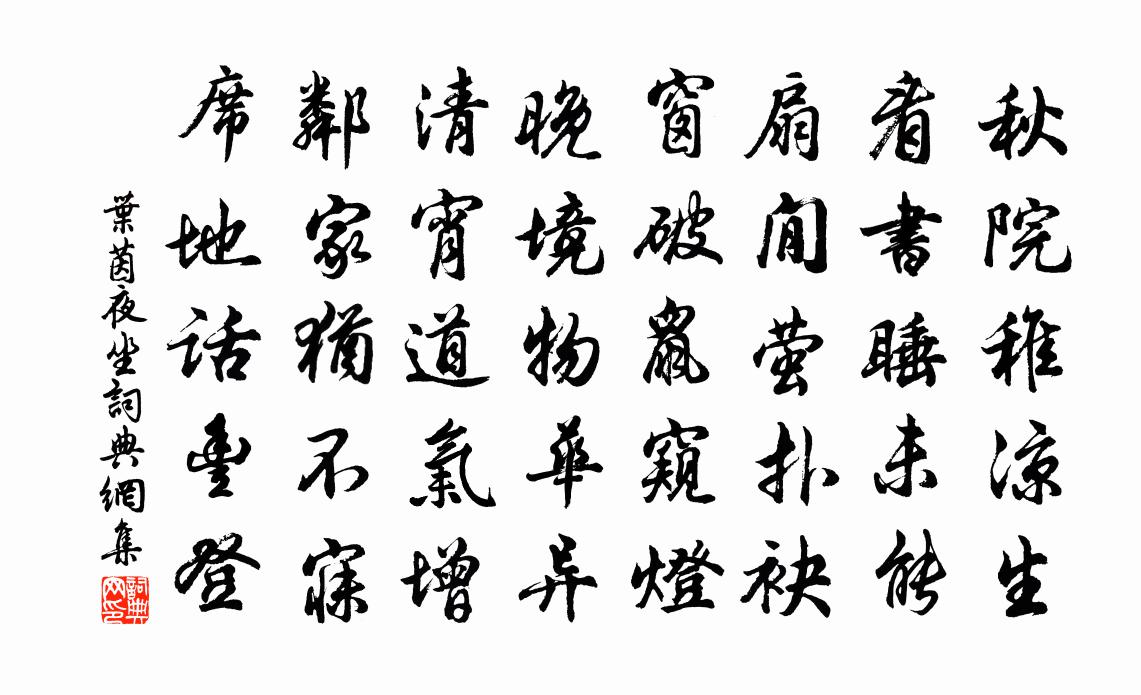 秋院稚涼生
看書睡未能
扇閒螢扑袂
窗破鼠窺燈
晚境物華异
清宵道氣增
鄰家猶不寐
席地話豐登
葉茵夜坐詞典網集
詞典网印